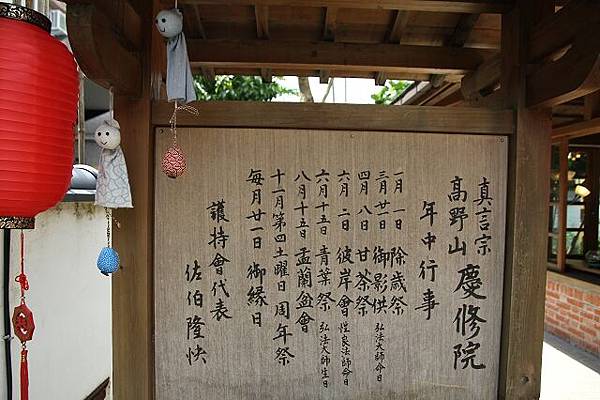 真言宗
高野山 慶修院
年中行事
一月一日 除歳祭
三月廿一日 御影供 弘法大師命日
四月八日 甘茶祭
六月二日 彼岸會 性良法師命日
六月十五日 青葉祭 弘法大師生日
八月十五日 盂蘭盆會
十一月第四土曜日 周年祭
每月廿一日 御緣日
護持會代表
佐伯隆快